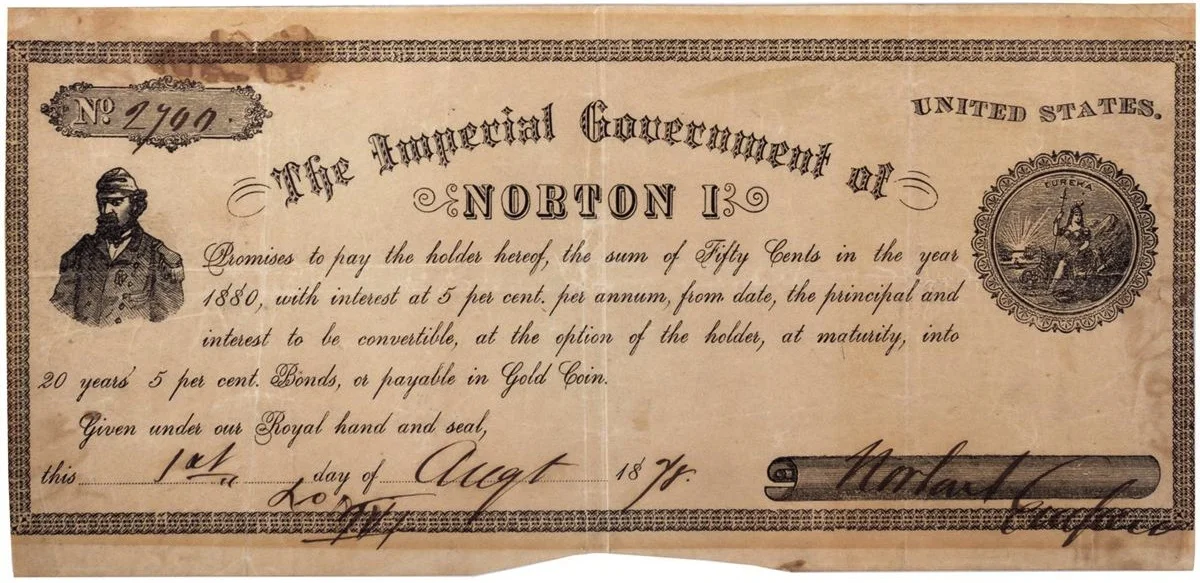 No. 2700.
UNITED STATES.
The Imperial Government of
NORTON I
EUREKA
Promises to pay the holder hereof, the sum of Fifty Cents in the year
1880, with interest at 5 per cent. per annum, from date, the principal and
interest to be convertible, at the option of the holder, at maturity, into
20 years' 5 per cent. Bonds, or payable in Gold Coin.
Given under our Royal hand and seal,
this 1st day of Augt 1878.
Norton I
Emperor